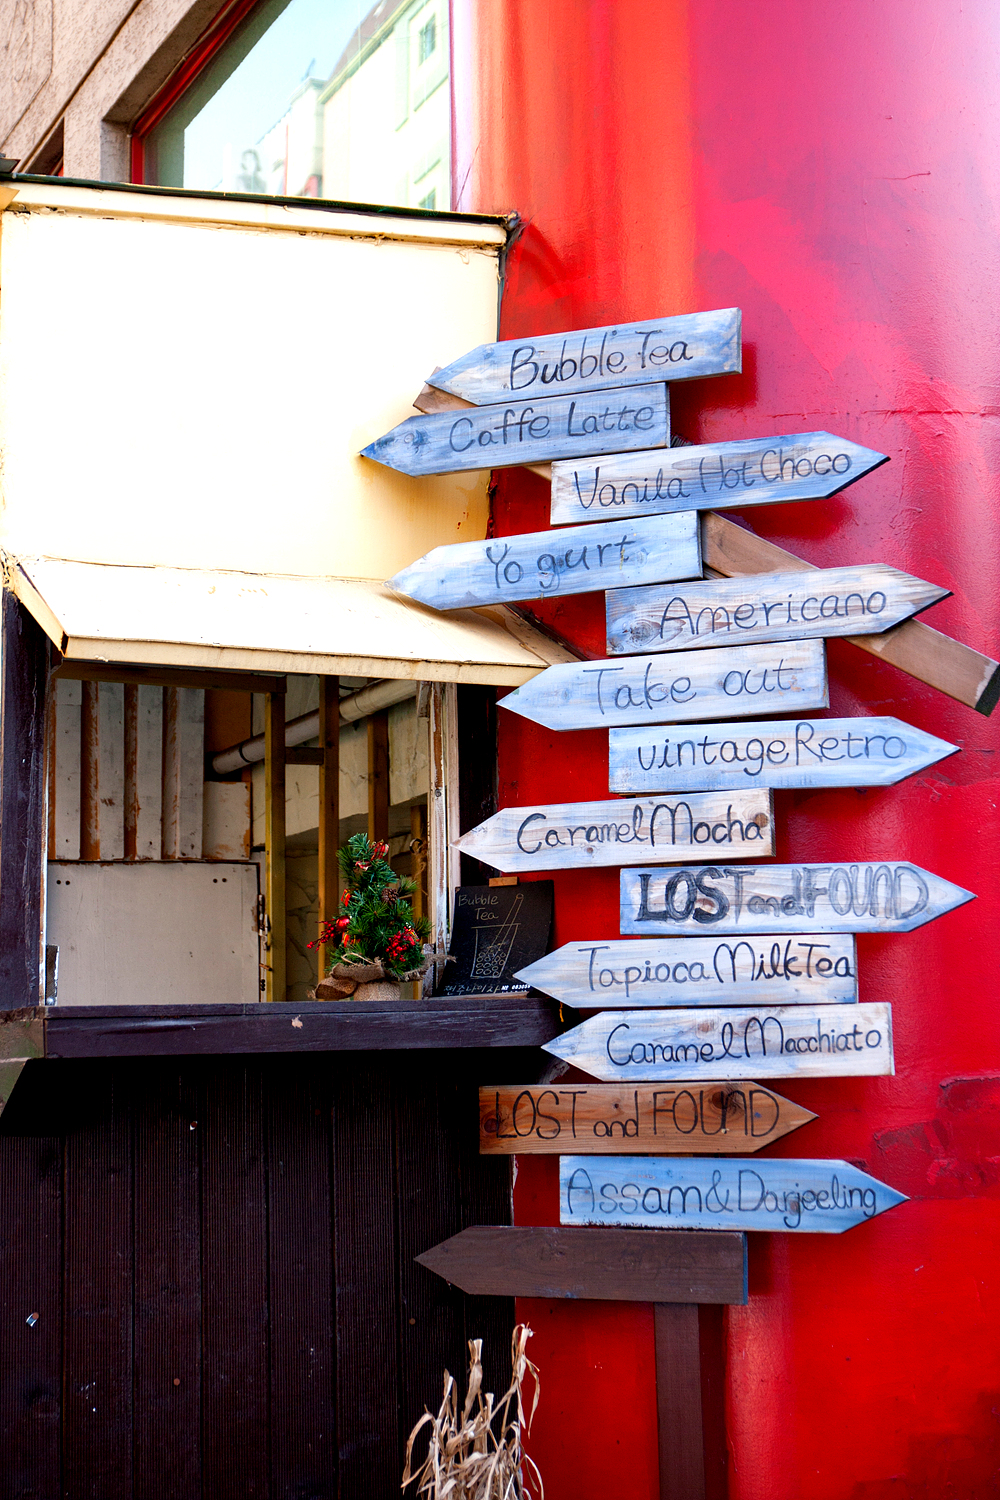 Bubble Tea
Caffe Latte
Vanila Hot Choco
Yogurt
Americano
Take out
vintage Retro
Caramel Mocha
LOST and FOUND
Bubble
Tea
Tapioca Milk Tea
Caramel Macchiato
LOST and FOUND
Assam & Darjeeling